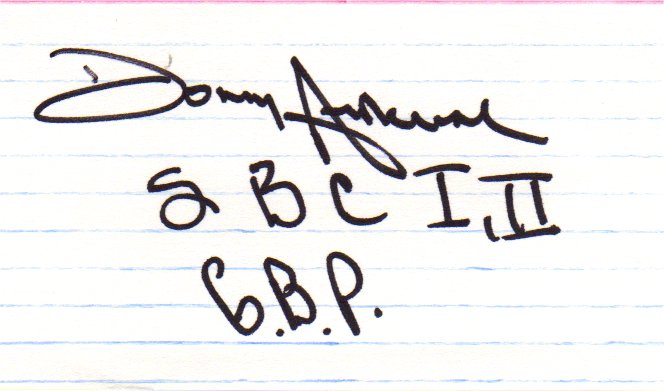 Donny Anderson
S B C I, II
G.B.P.